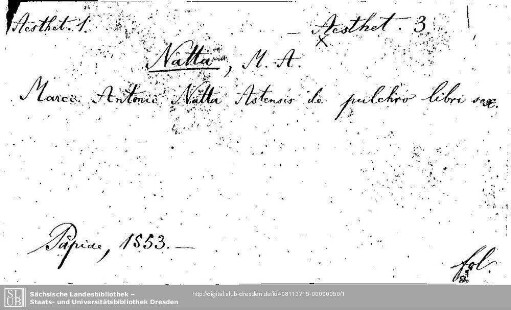 Aesthet. 1.
Aesthet. 3
Natta, M. A.
Marci Antonii Natta Astensis de pulchro libri sex.
Papiae, 1553.
fol.
Sächsische Landesbibliothek –
Staats- und Universitätsbibliothek Dresden